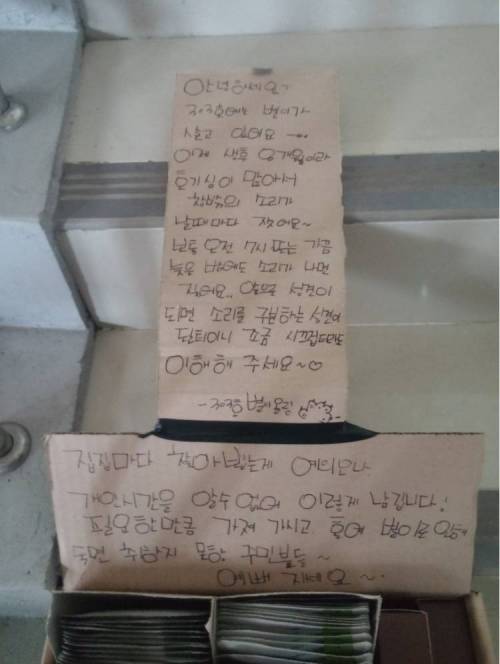 안녕하세요~
303호에는 별이가
살고 있어요 ~
이제 생후 8개월이라
호기심이 많아서
창밖의 소리가
날때마다 짖어요~
보통 오전 7시 또는 가끔
늦은 밤에도 소리가 나면
짖어요.. 앞으로 성견이
되면 소리를 구분하는 성견이
될테이니 조금 시끄럽더라도
이해해 주세요~♡
- 303호 별이올림
집집마다 찾아뵙는게 예의오나
개인시간을 알수 없어 이렇게 남깁니다!
필요한만큼 가져 가시고 혹여 별이로 인해
숙면 취하지 못한 주민분들~
예쁘게 지내요~